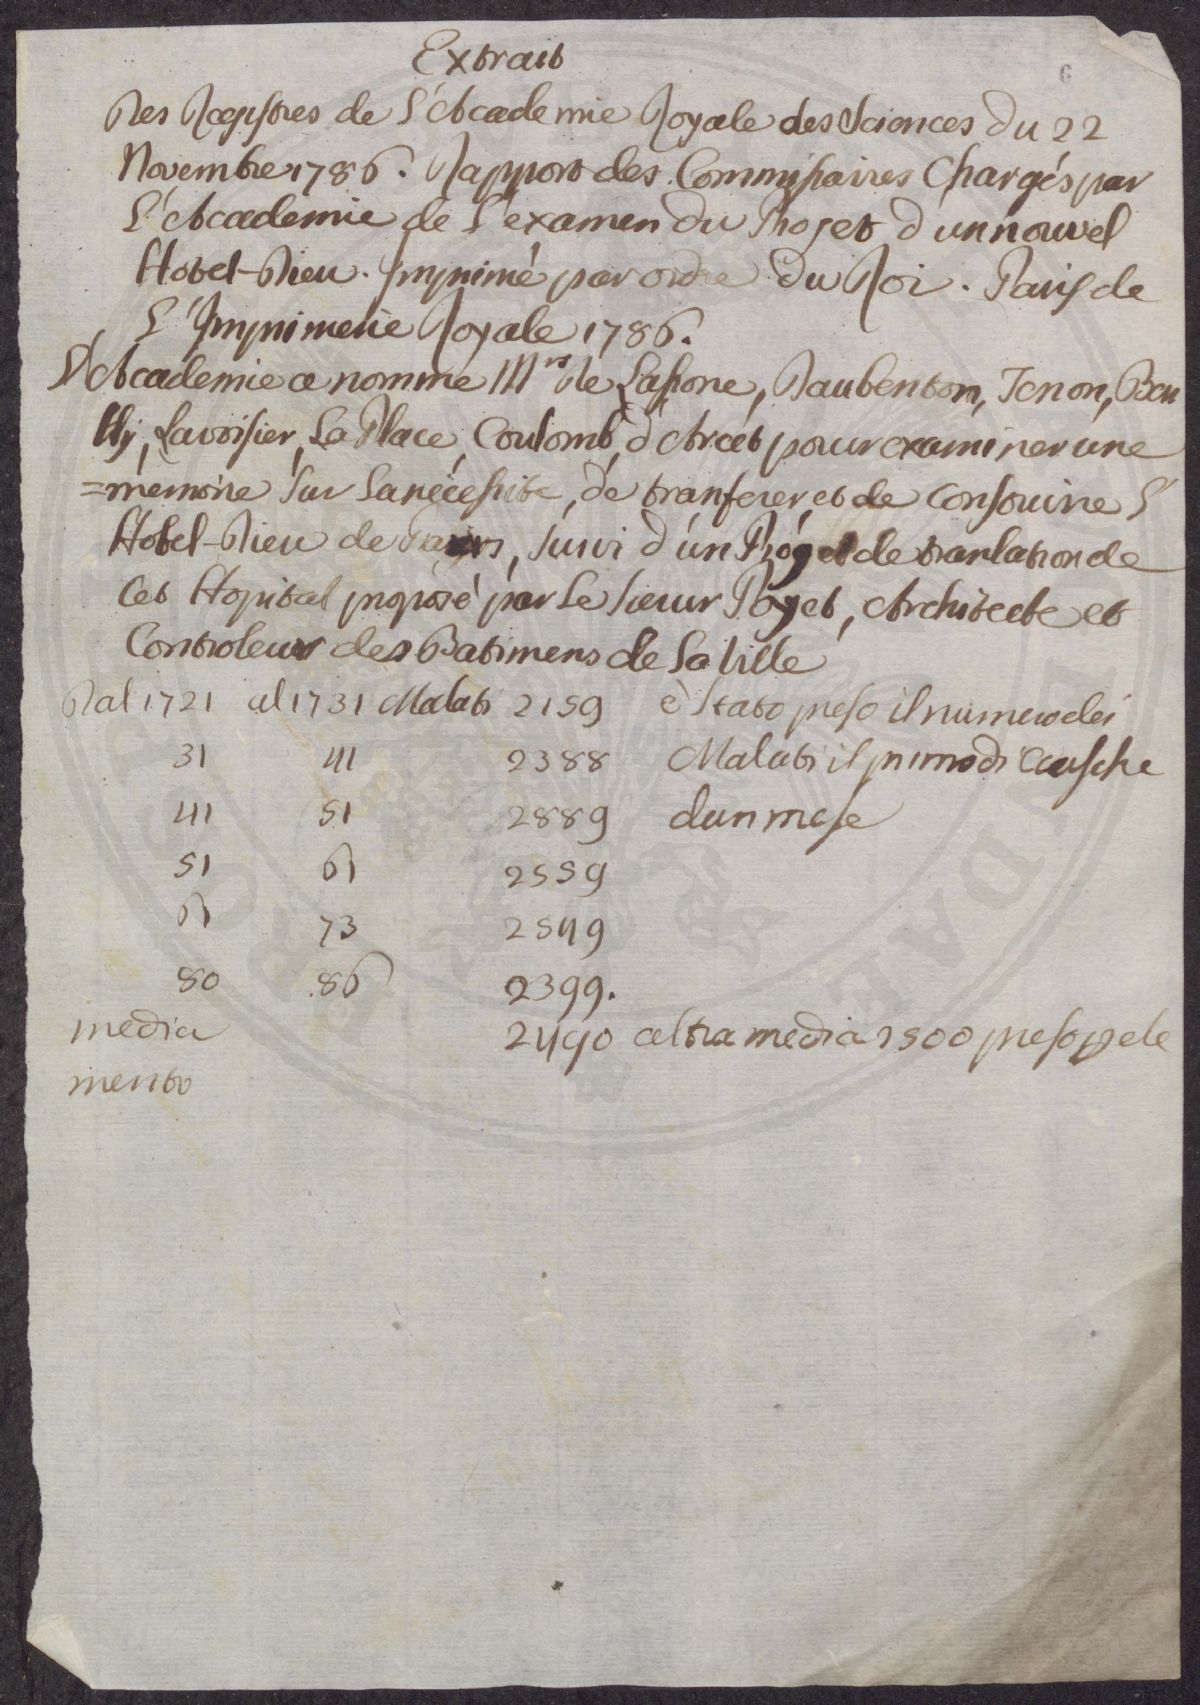 6
Extrait
Des Registres de L'Academie Royale des Sciences du 22
Novembre 1786. Rapport des Commissaires Chargés par
L'Academie de L'examen du Projet d'un nouvel
Hotel-Dieu. Imprimé par ordre du Roi. Paris de
L'Imprimerie Royale 1786.
L'Academie a nomme Mrs De Lassone, Daubenton, Tenon, Bai
lly, Lavoisier, La Place, Coulomb, d'Arcet pour examiner une
=memoire sur La necessite, de transferer et de Consouire L'
Hotel-Dieu de Paris, suivi d'un Projet de tranlation de
Cet Hopital proposé par Le sieur Poyet, Architecte et
Controleur des Batimens de La Ville
Dal 1721 al 1731 Malati 2159 è stato preso il numero dei
31 41 2388 Malati il primo di ciasche
41 51 2889 dun mese
51 61 2559
61 73 2549
80 .86 2399.
media 2490 altra media 2500 preso pele
mento